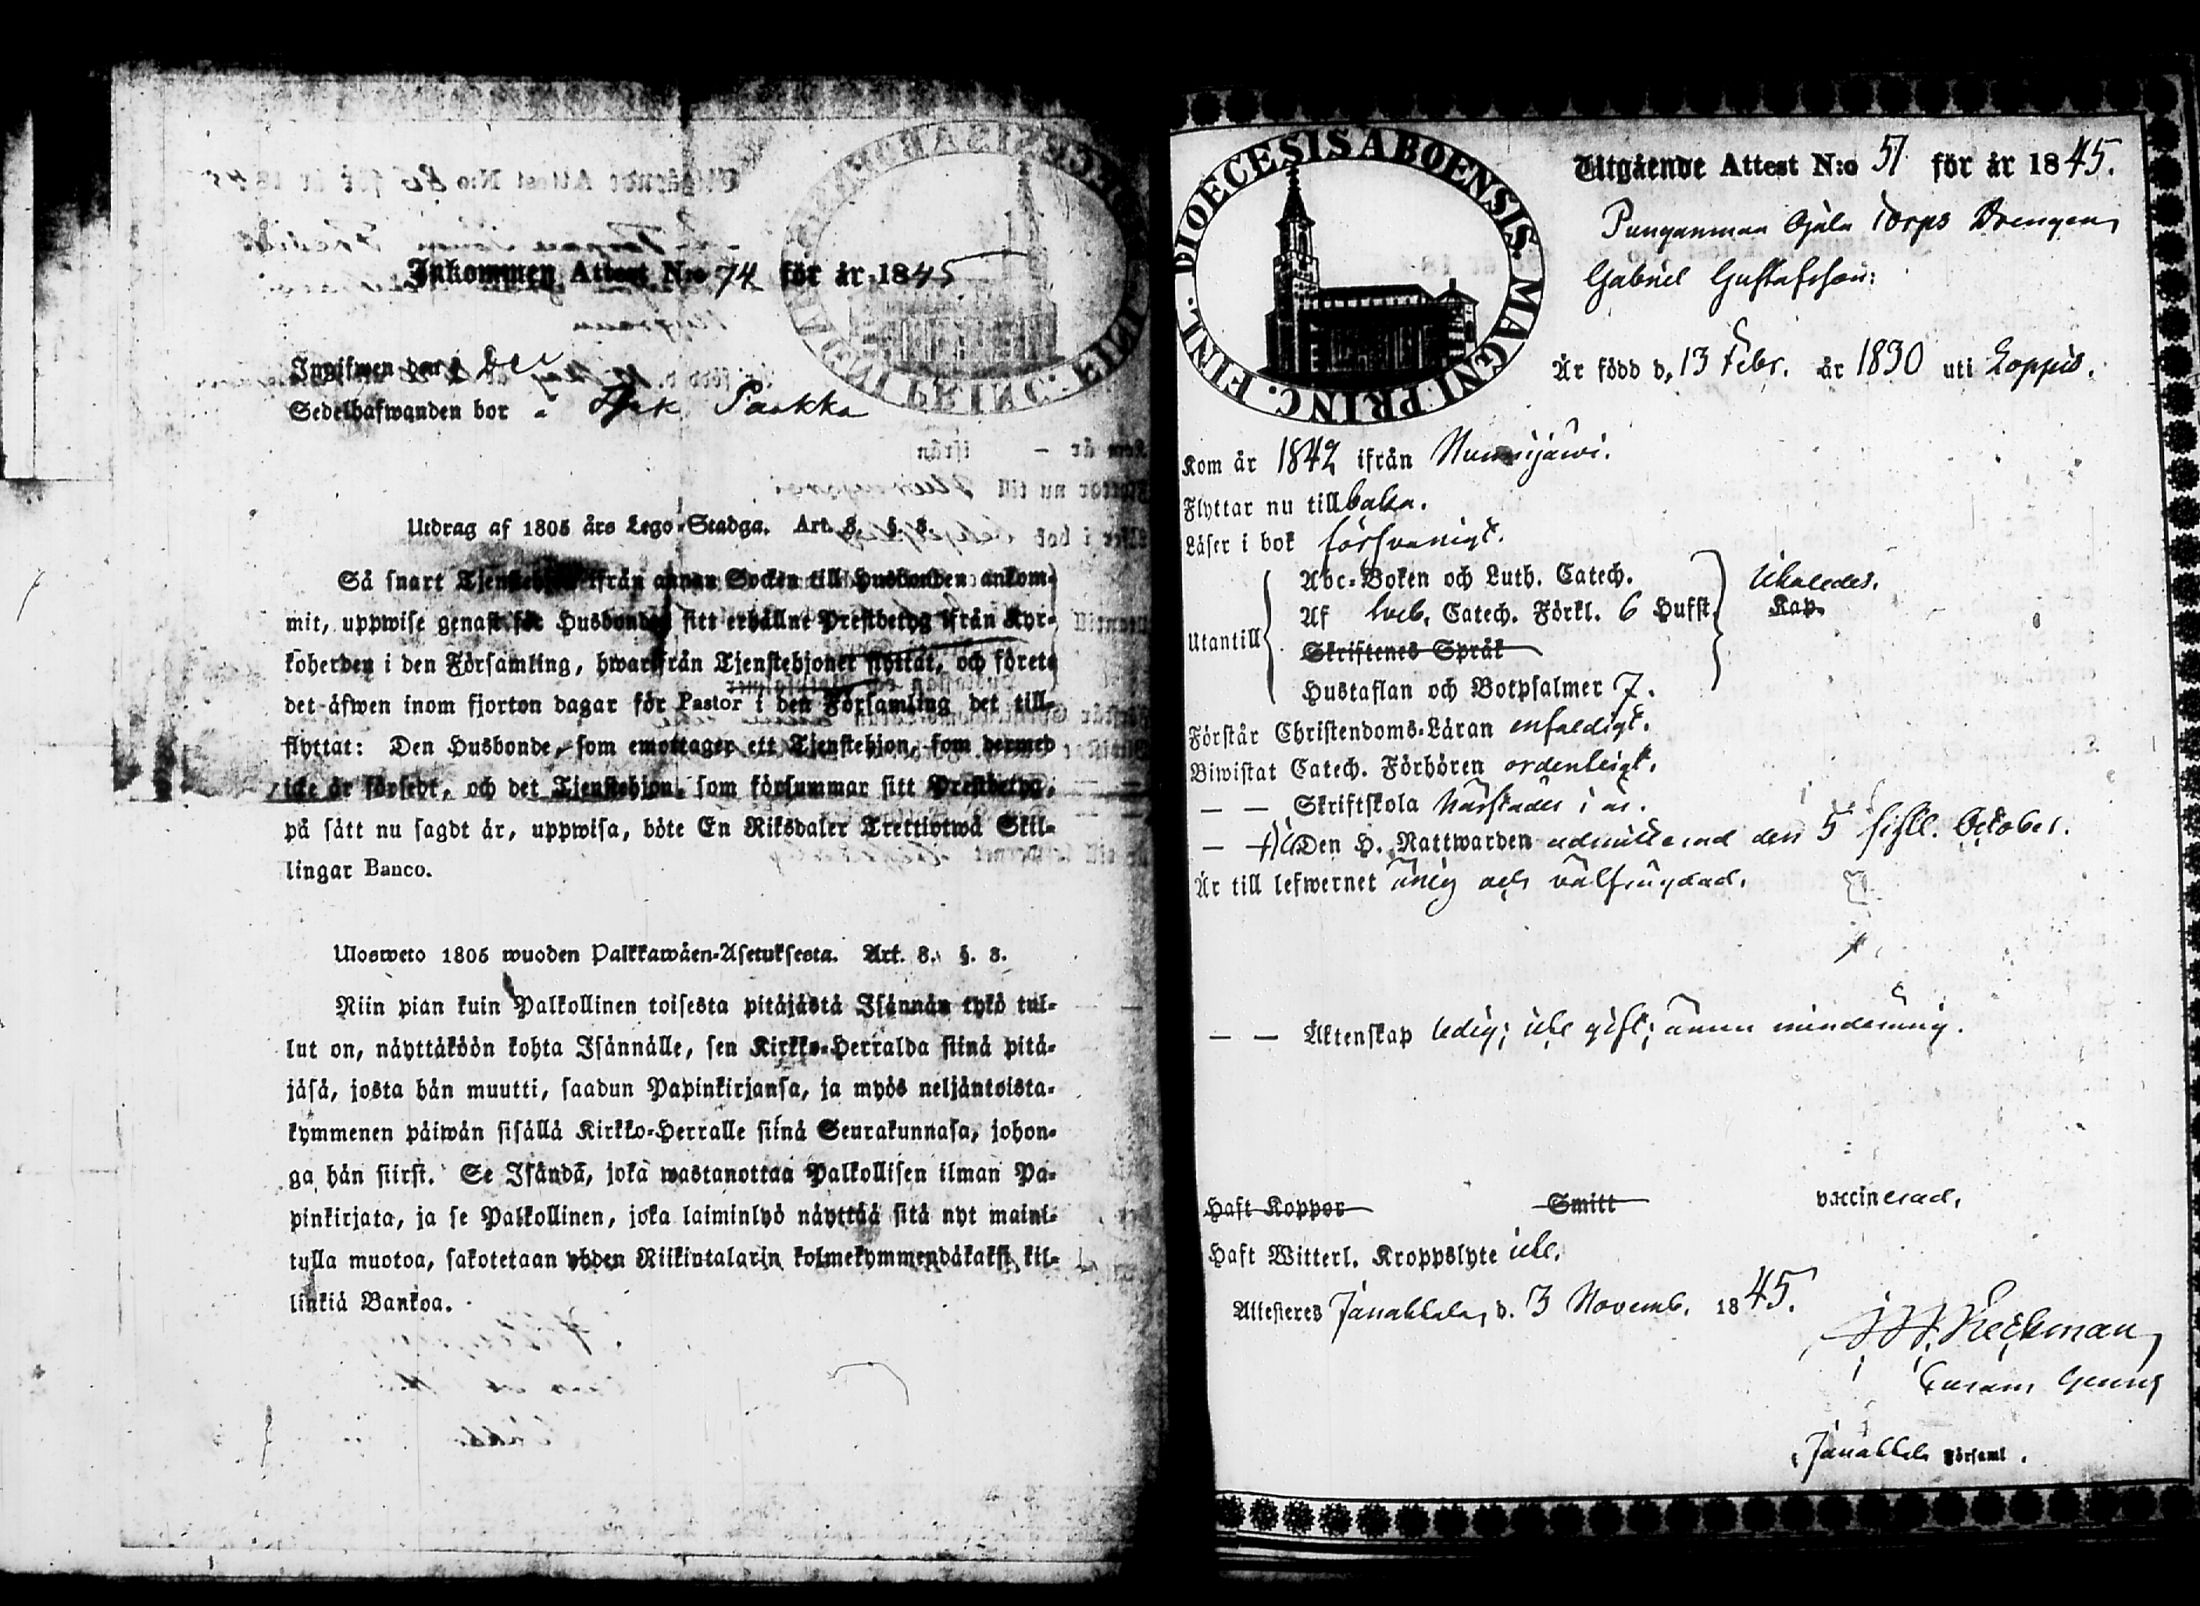 Inkommen Attest N:o 74 för år 1845
Ingifwen den
Sedelhafwanden bor
Utdrag af 1805 års Lego-Stadga. Art. 8. §. 8.
Så snart Tjenstehjon ifrån annan Socken till Husbonden ankom-
mit, uppwise genast för Husbonden sitt erhållne Prestbetyg ifrån Kyr-
koherden i den Församling, hwarifrån Tjenstehjonet flyttat, och förete
det äfwen inom fjorton dagar för Pastor i den Församling det till-
flyttat: Den Husbonde, som emottager ett Tjenstehjon, som dermed
icke är försedt, och det Tjenstehjon, som försummar sitt Prestbetyg,
på sätt nu sagdt är, uppwisa, böte En Riksdaler Trettiotwå Skil-
lingar Banco.
Ulosweto 1805 wuoden Palkkawäen-Asetuksesta. Art. 8. §. 8.
Niin pian kuin Palkollinen toisesta pitäjästä Isännän tykö tul-
lut on, näyttäköön kohta Isännälle, sen Kirkko-Herralda siinä pitä-
jäsä, josta hän muutti, saadun Papinkirjansa, ja myös neljäntoista-
kymmenen päiwän sisällä Kirkko-Herralle siinä Seurakunnasa, johon-
ga hän siirst. Se Isändä, joka wastanottaa Palkollisen ilman Pa-
pinkirjata, ja se Palkollinen, joka laiminlyö näyttää sitä nyt maini-
tulla muotoa, sakotetaan yhden Riikintalarin kolmekymmendäkaksi kil-
linkiä Bankoa.
DIOECESIS ABOENSIS. MAGNI PRINC. FINL.
Utgående Attest N:o 51 för år 1845.
Torps Drengen
Gabriel Gustafsson:
Är född d. 13 Febr. år 1830 uti Loppis.
Kom år 1842 ifrån Nummijärvi.
Flyttar nu tillbaka.
Läser i bok försvarligt.
Utantill
Abc-Boken och Luth. Catech.
Af Sveb. Catech. Förkl. 6 Hufst.
Skriftenes Språk
Hustaflan och Botpsalmer 7.
Likaledes.
Kap.
Förstår Christendoms-Läran enfaldigt.
Biwistat Catech. Förhören ordentligt.
— — Skriftskola härstädes i år.
— Till Den H. Nattwarden admitterad den 5 sistl. October.
Är till lefwernet ärlig och välfrägdad.
— — Äktenskap ledig; icke gift; ännu minderårig.
Haft Koppor Smitt vaccinerad.
Haft Witterl. Kroppslyte icke.
Attesteres Janakkala, d. 3 Novemb. 1845.
Janakkala Församl.